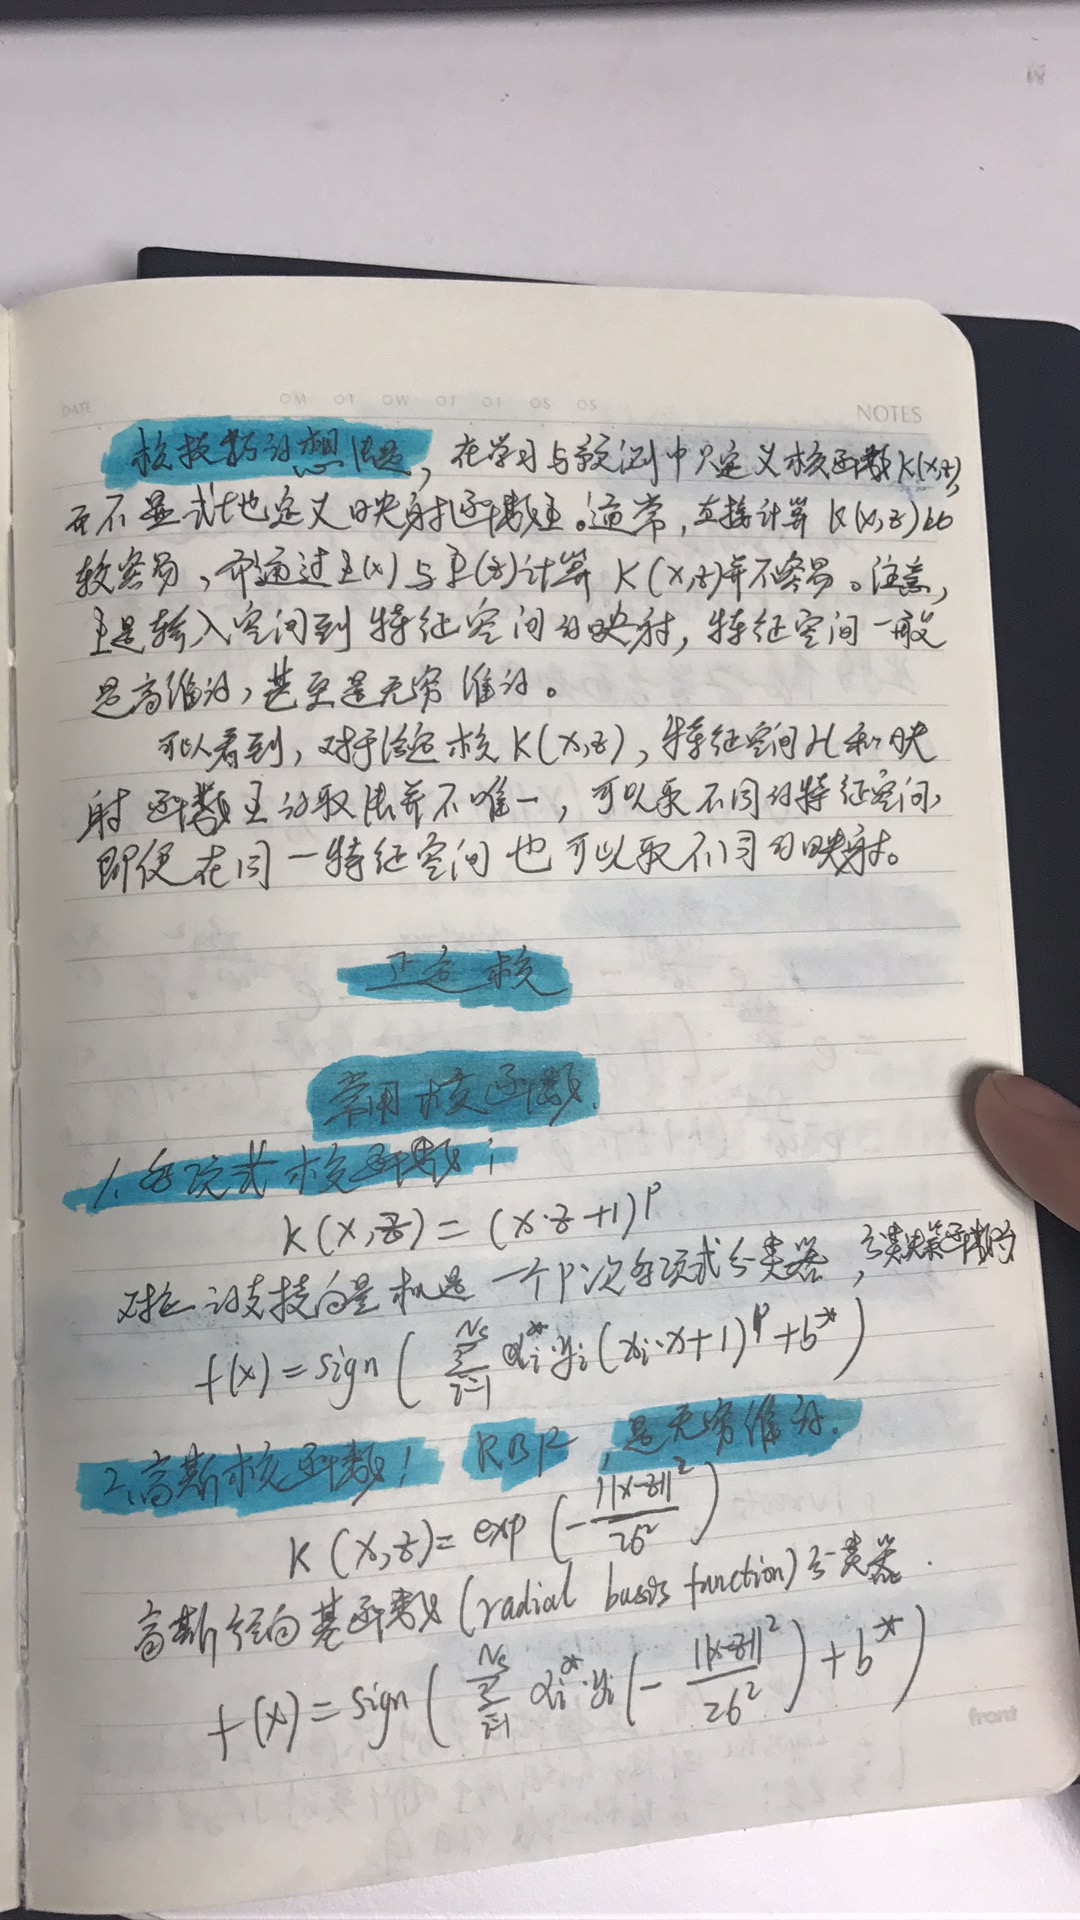 DATE OM OT OW OT OT OS OS NOTES
核技巧的想法是，在学习与预测中只定义核函数K(x,z),
而不显式地定义映射函数Φ。通常，直接计算K(x,z)比
较容易，而通过Φ(x)与Φ(z)计算K(x,z)并不容易。注意，
Φ是输入空间到特征空间的映射，特征空间一般
是高维的，甚至是无穷维的。
可以看到，对于给定核K(x,z)，特征空间H和映
射函数Φ的取法并不唯一，可以取不同的特征空间，
即便在同一特征空间也可以取不同的映射。
正定核
常用核函数.
1.多项式核函数：
K(x,z)=(x·z+1)^p
对应的支持向量机是一个p次多项式分类器，分类决策函数为
f(x)=sign( Σ_{i=1}^{Ns} α_i^*·y_i(x_i·x+1)^p+b^*)
2.高斯核函数！ RBF，是无穷维的.
K(x,z)=exp(-||x-z||²/2σ²)
高斯径向基函数(radial basis function)分类器.
f(x)=sign( Σ_{i=1}^{Ns} α_i^*·y_i(-||x-z||²/2σ²)+b^*)
front